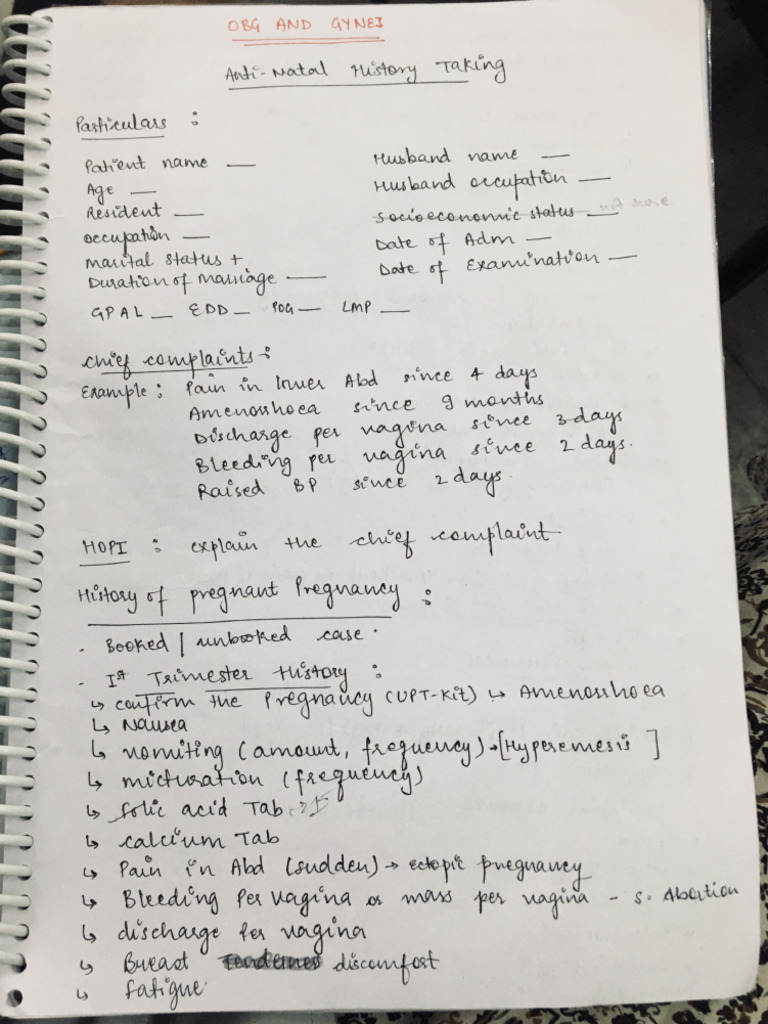 OBG AND GYNEI
Anti-Natal History Taking
Particulars :
Patient name —
Age —
Resident —
occupation —
Marital status +
Duration of Marriage —
Husband name —
Husband occupation —
socioeconomic status —
Date of Adm —
Date of Examination —
GPAL — EDD — POG — LMP —
chief complaints :
Example : Pain in lower Abd since 4 days
Amenorrhoea since 9 months
Discharge per vagina since 3 days
Bleeding per vagina since 2 days.
Raised BP since 2 days.
HOPI : explain the chief complaint
History of pregnant Pregnancy :
. Booked / unbooked case.
. Ist Trimester History :
↳ confirm the Pregnancy (UPT-Kit) ↳ Amenorrhoea
↳ Nausea
↳ vomiting (amount, frequency) → [Hyperemesis ]
↳ micturation (frequency)
↳ folic acid Tab
↳ calcium Tab
↳ Pain in Abd (sudden) → ectopic pregnancy
↳ Bleeding Per vagina or mass per vagina – S. Abortion
↳ discharge per vagina
↳ Breast discomfort
↳ fatigue.